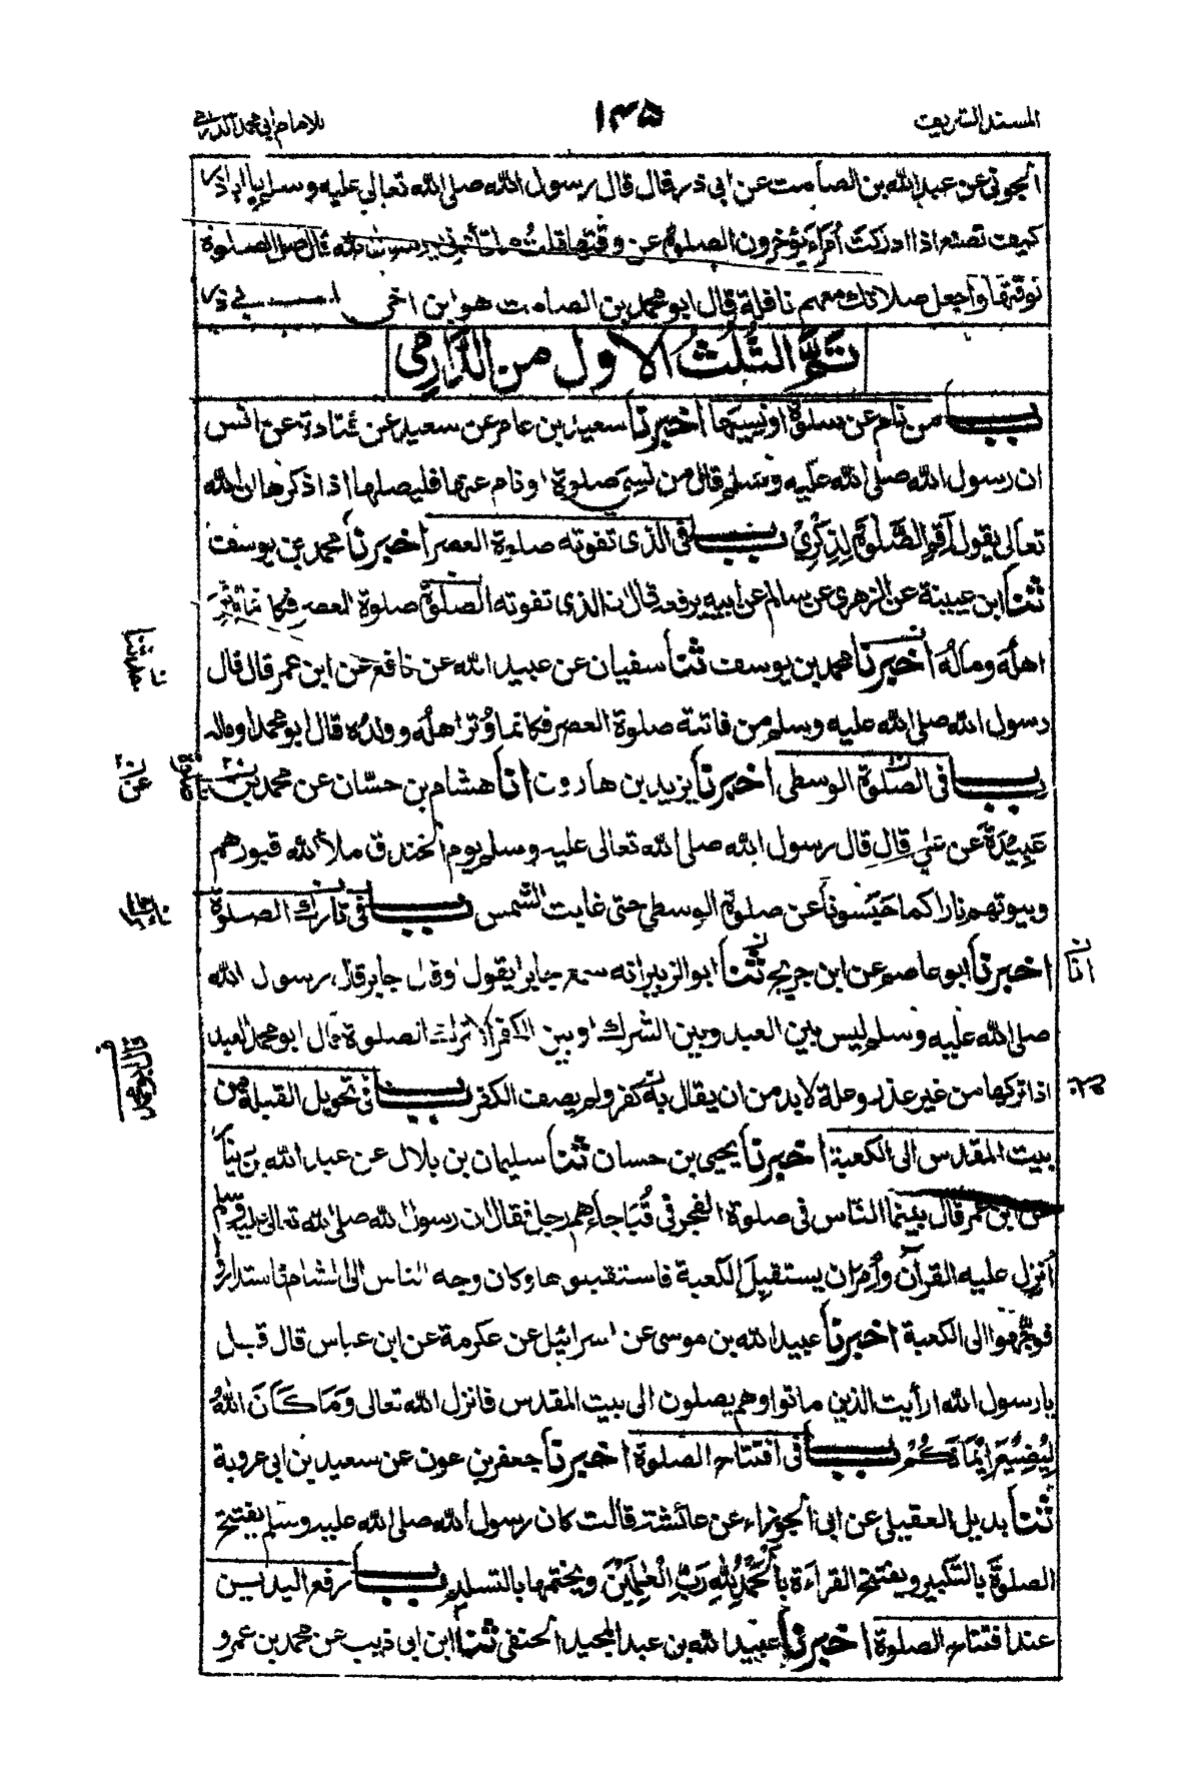 المسند الشريف
١٣٥
للامام ابى محمد الدارمى
الجونى عن عبد الله بن الصامت عن ابى ذر قال قال رسول الله صلى الله تعالى عليه وسلم يا ابا ذر
كيف تصنع اذا ادركت أمراء يؤخرون الصلوة عن وقتها قلت ما تأمرنى يا رسول الله قال صل الصلوة
لوقتها واجعل صلاتك معهم نافلة قال ابو محمد بن الصامت هو ابن اخى ابى ذر
تَمَّ الثُّلُثُ الاول من الدَّارِمِى
باب من نام عن صلوة او نسيها اخبرنا سعيد بن عامر عن سعيد عن قتادة عن انس
ان رسول الله صلى الله عليه وسلم قال من نسى صلوة او نام عنها فليصلها اذا ذكرها ان الله
تعالى يقول أَقِمِ الصَّلوةَ لِذِكْرِىْ باب فى الذى تفوته صلوة العصر اخبرنا محمد بن يوسف
ثنا ابن عيينة عن الزهرى عن سالم عن ابيه يرفعه قال ان الذى تفوته الصلوة صلوة العصر فكانما وتر
اهلُه ومالُه اخبرنا محمد بن يوسف ثنا سفيان عن عبيد الله عن نافع عن ابن عمر قال قال
رسول الله صلى الله عليه وسلم من فاتته صلوة العصر فكانما وُتر اهلُه وولدُه قال ابو محمد او ماله
باب فى الصلوة الوسطى اخبرنا يزيد بن هارون انا هشام بن حسّان عن محمد بن
عَبِيْدَةَ عن على قال قال رسول الله صلى الله تعالى عليه وسلم يوم الخندق ملأ الله قبورهم
وبيوتهم نارا كما حَبَسُونا عن صلوة الوسطى حتى غابت الشمس باب فى تارك الصلوة
اخبرنا ابو عاصم عن ابن جريج ثنا ابو الزبير انه سمع جابرا يقول او قال جابر قال رسول الله
صلى الله عليه وسلم ليس بين العبد وبين الشرك او بين الكفر الا ترك الصلوة قال ابو محمد العبد
اذا تركها من غير عذر وعلة لا بد من ان يقال به كفر ولم يصف الكفر باب فى تحويل القبلة من
بيت المقدس الى الكعبة اخبرنا يحيى بن حسان ثنا سليمان بن بلال عن عبد الله بن دينار
عن ابن عمر قال بينما الناس فى صلوة الفجر فى قُبَا جاءهم رجل فقال ان رسول الله صلى الله تعالى عليه وسلم
أُنزِل عليه القرآن وأُمِر ان يستقبل الكعبة فاستقبلوها وكان وجه الناس الى الشام فاستداروا
فوجّهوا الى الكعبة اخبرنا عبيد الله بن موسى عن اسرائيل عن عكرمة عن ابن عباس قال قيل
يا رسول الله ارأيت الذين ماتوا وهم يصلون الى بيت المقدس فانزل الله تعالى وَمَا كَانَ اللهُ
لِيُضِيْعَ اِيْمَانَكُمْ باب فى افتتاح الصلوة اخبرنا جعفر بن عون عن سعيد بن ابى عروبة
ثنا بديل العقيلى عن ابى الجوزاء عن عائشة قالت كان رسول الله صلى الله عليه وسلم يفتتح
الصلوةَ بالتكبير ويفتتح القراءة بِاَلْحَمْدُ لِلهِ رَبِّ الْعٰلَمِيْنَ ويختمها بالتسليم باب رفع اليدين
عند افتتاح الصلوة اخبرنا عبيد الله بن عبد المجيد الحنفى ثنا ابن ابى ذيب عن محمد بن عمرو